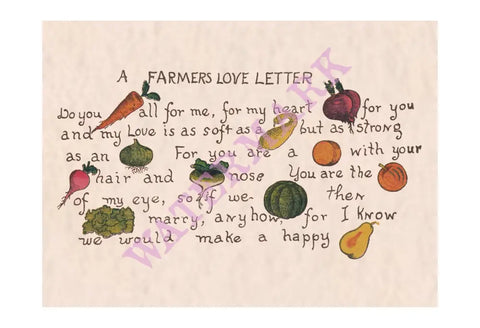 A FARMERS LOVE LETTER
Do you all for me, for my heart for you
and my Love is as soft as a but as strong
as an For you are a with your
hair and nose You are the
of my eye, so if we- then
marry, anyhow, for I Know
we would make a happy
WATERMARK